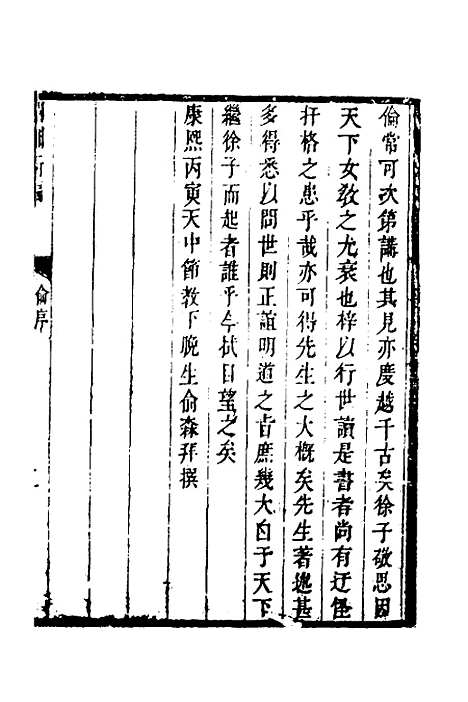 倫常可次第講也其見亦度越千古矣徐子敬思因
天下女敎之尤衰也梓以行世讀是書者尚有迂怪
扞格之患乎哉亦可得先生之大概矣先生著述甚
多得悉以問世則正誼明道之旨庶幾大白于天下
繼徐子而起者誰乎吾拭目望之矣
康熙丙寅天中節敎下晚生俞森拜撰
俞序